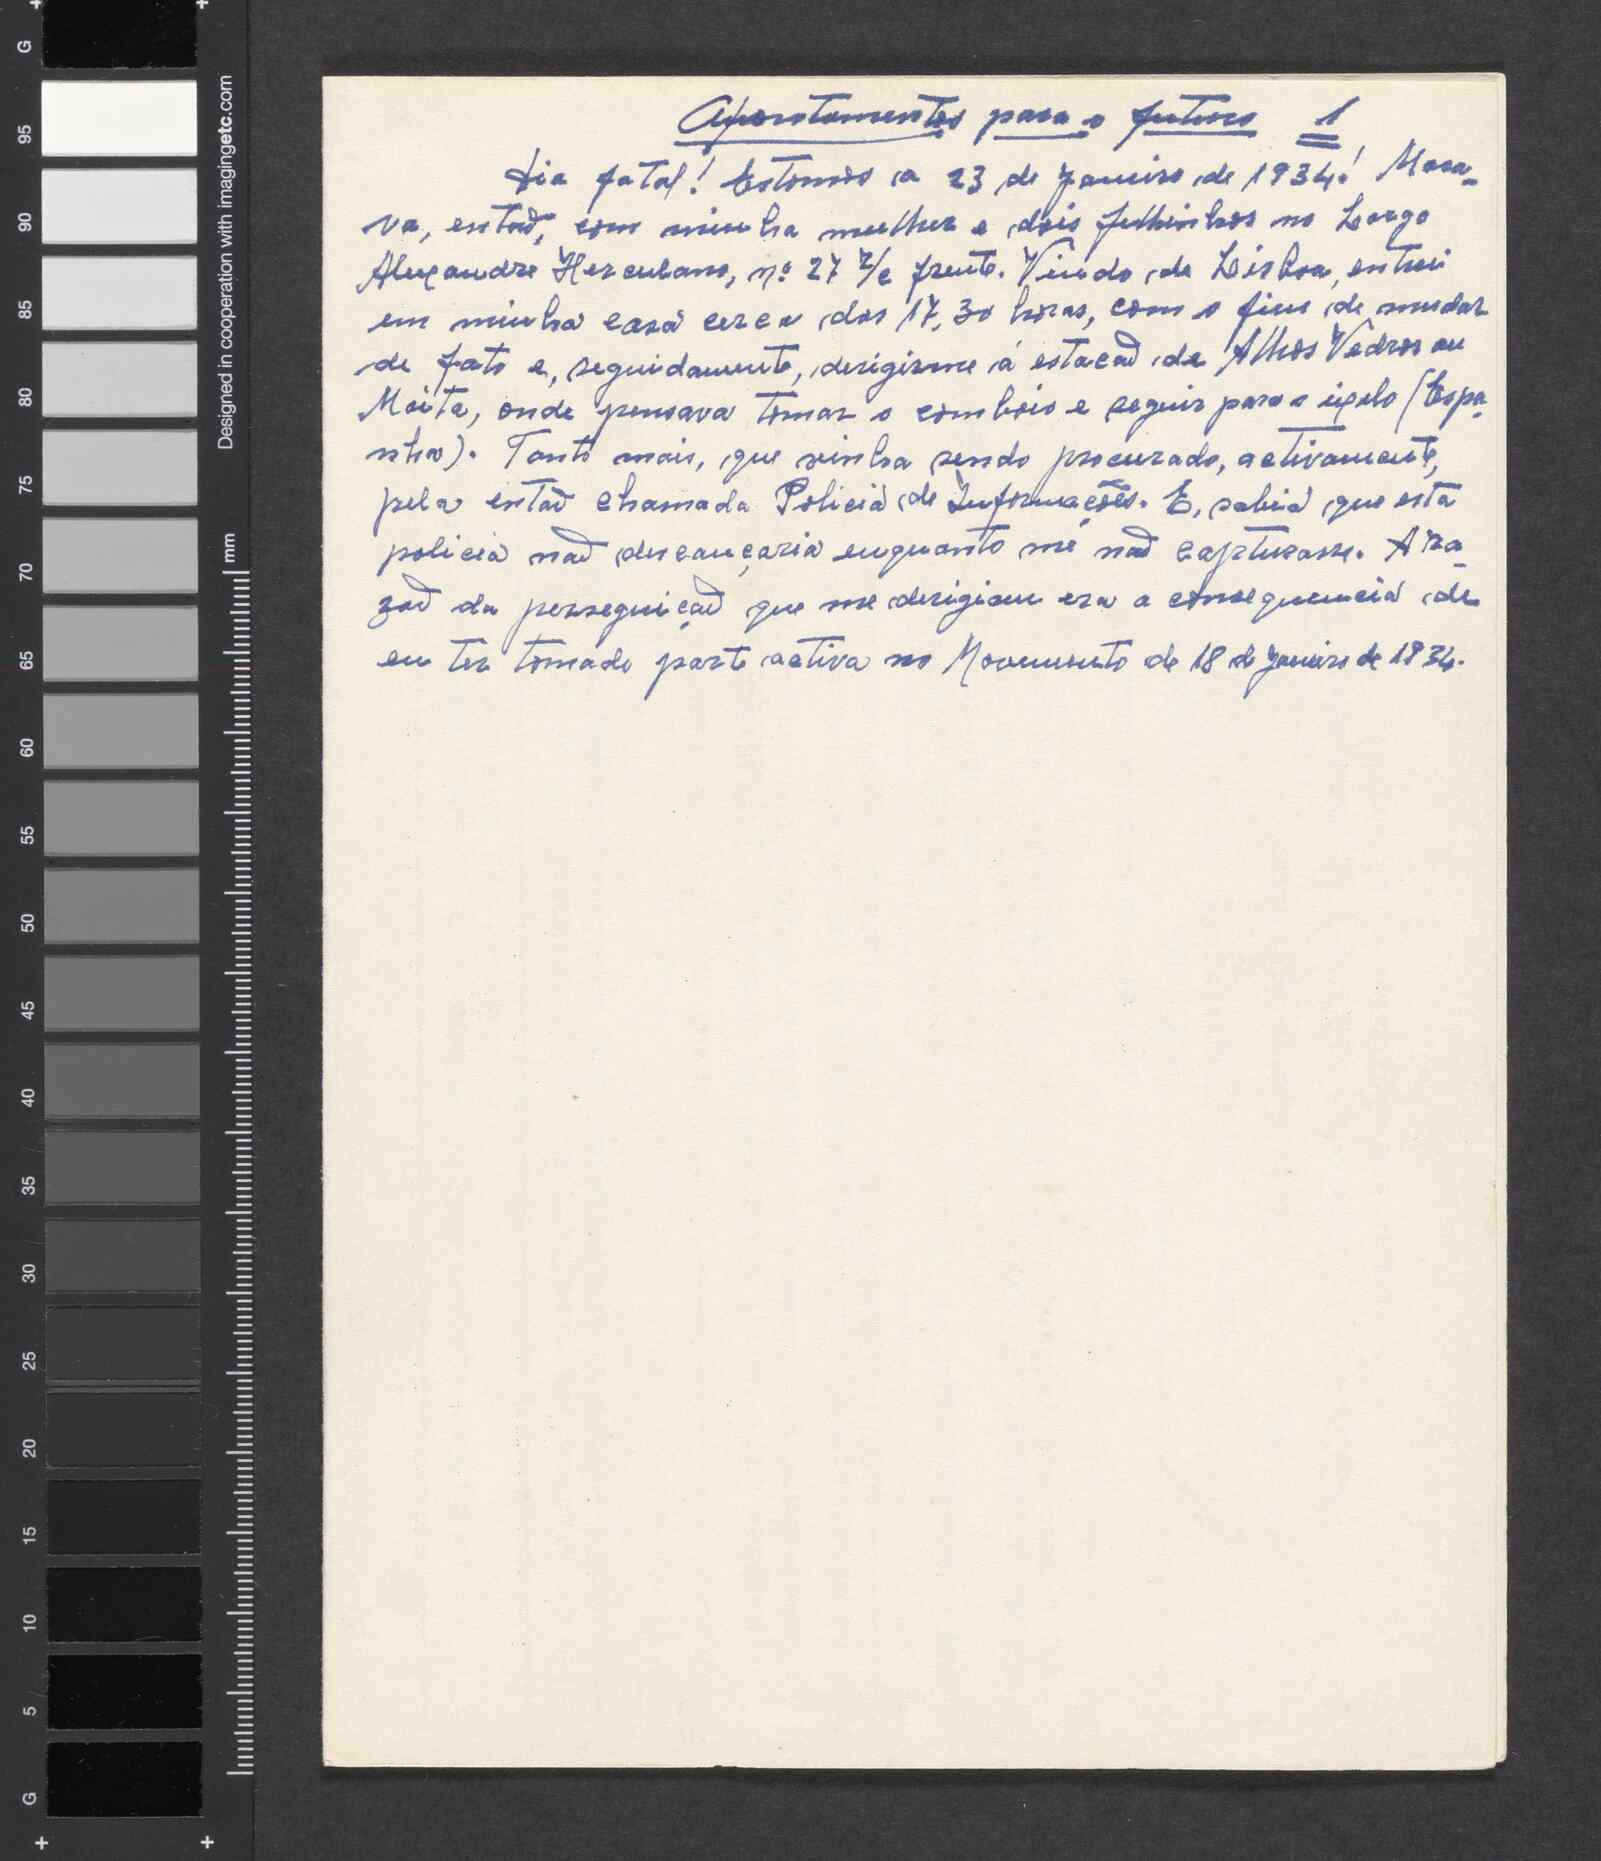 Apontamentos para o futuro 1
Dia fatal! Estamos a 23 de Janeiro de 1934! Mora-
va, então, com minha mulher e dois filhinhos no Largo
Alexandre Herculano, nº 27 r/c frente. Vindo de Lisboa, entrei
em minha casa cerca das 17,30 horas, com o fim de mudar
de fato e, seguidamente, dirigirme á estacão de Alhos Vedros ou
Moita, onde pensava tomar o comboio e seguir para o exelo (Espa-
nha). Tanto mais, que vinha sendo procurado, activamente,
pela então chamada Policia de Informações. E, sabia que esta
policia não descançaria enquanto me não capturasse. A ra-
zão da perseguição que me derigiam era a consequencia de
eu ter tomado parte activa no Movimento de 18 de Janeiro de 1934.
G
95
90
85
80
75
70
65
60
55
50
45
40
35
30
25
20
15
10
5
G
Designed in cooperation with imagingetc.com
mm